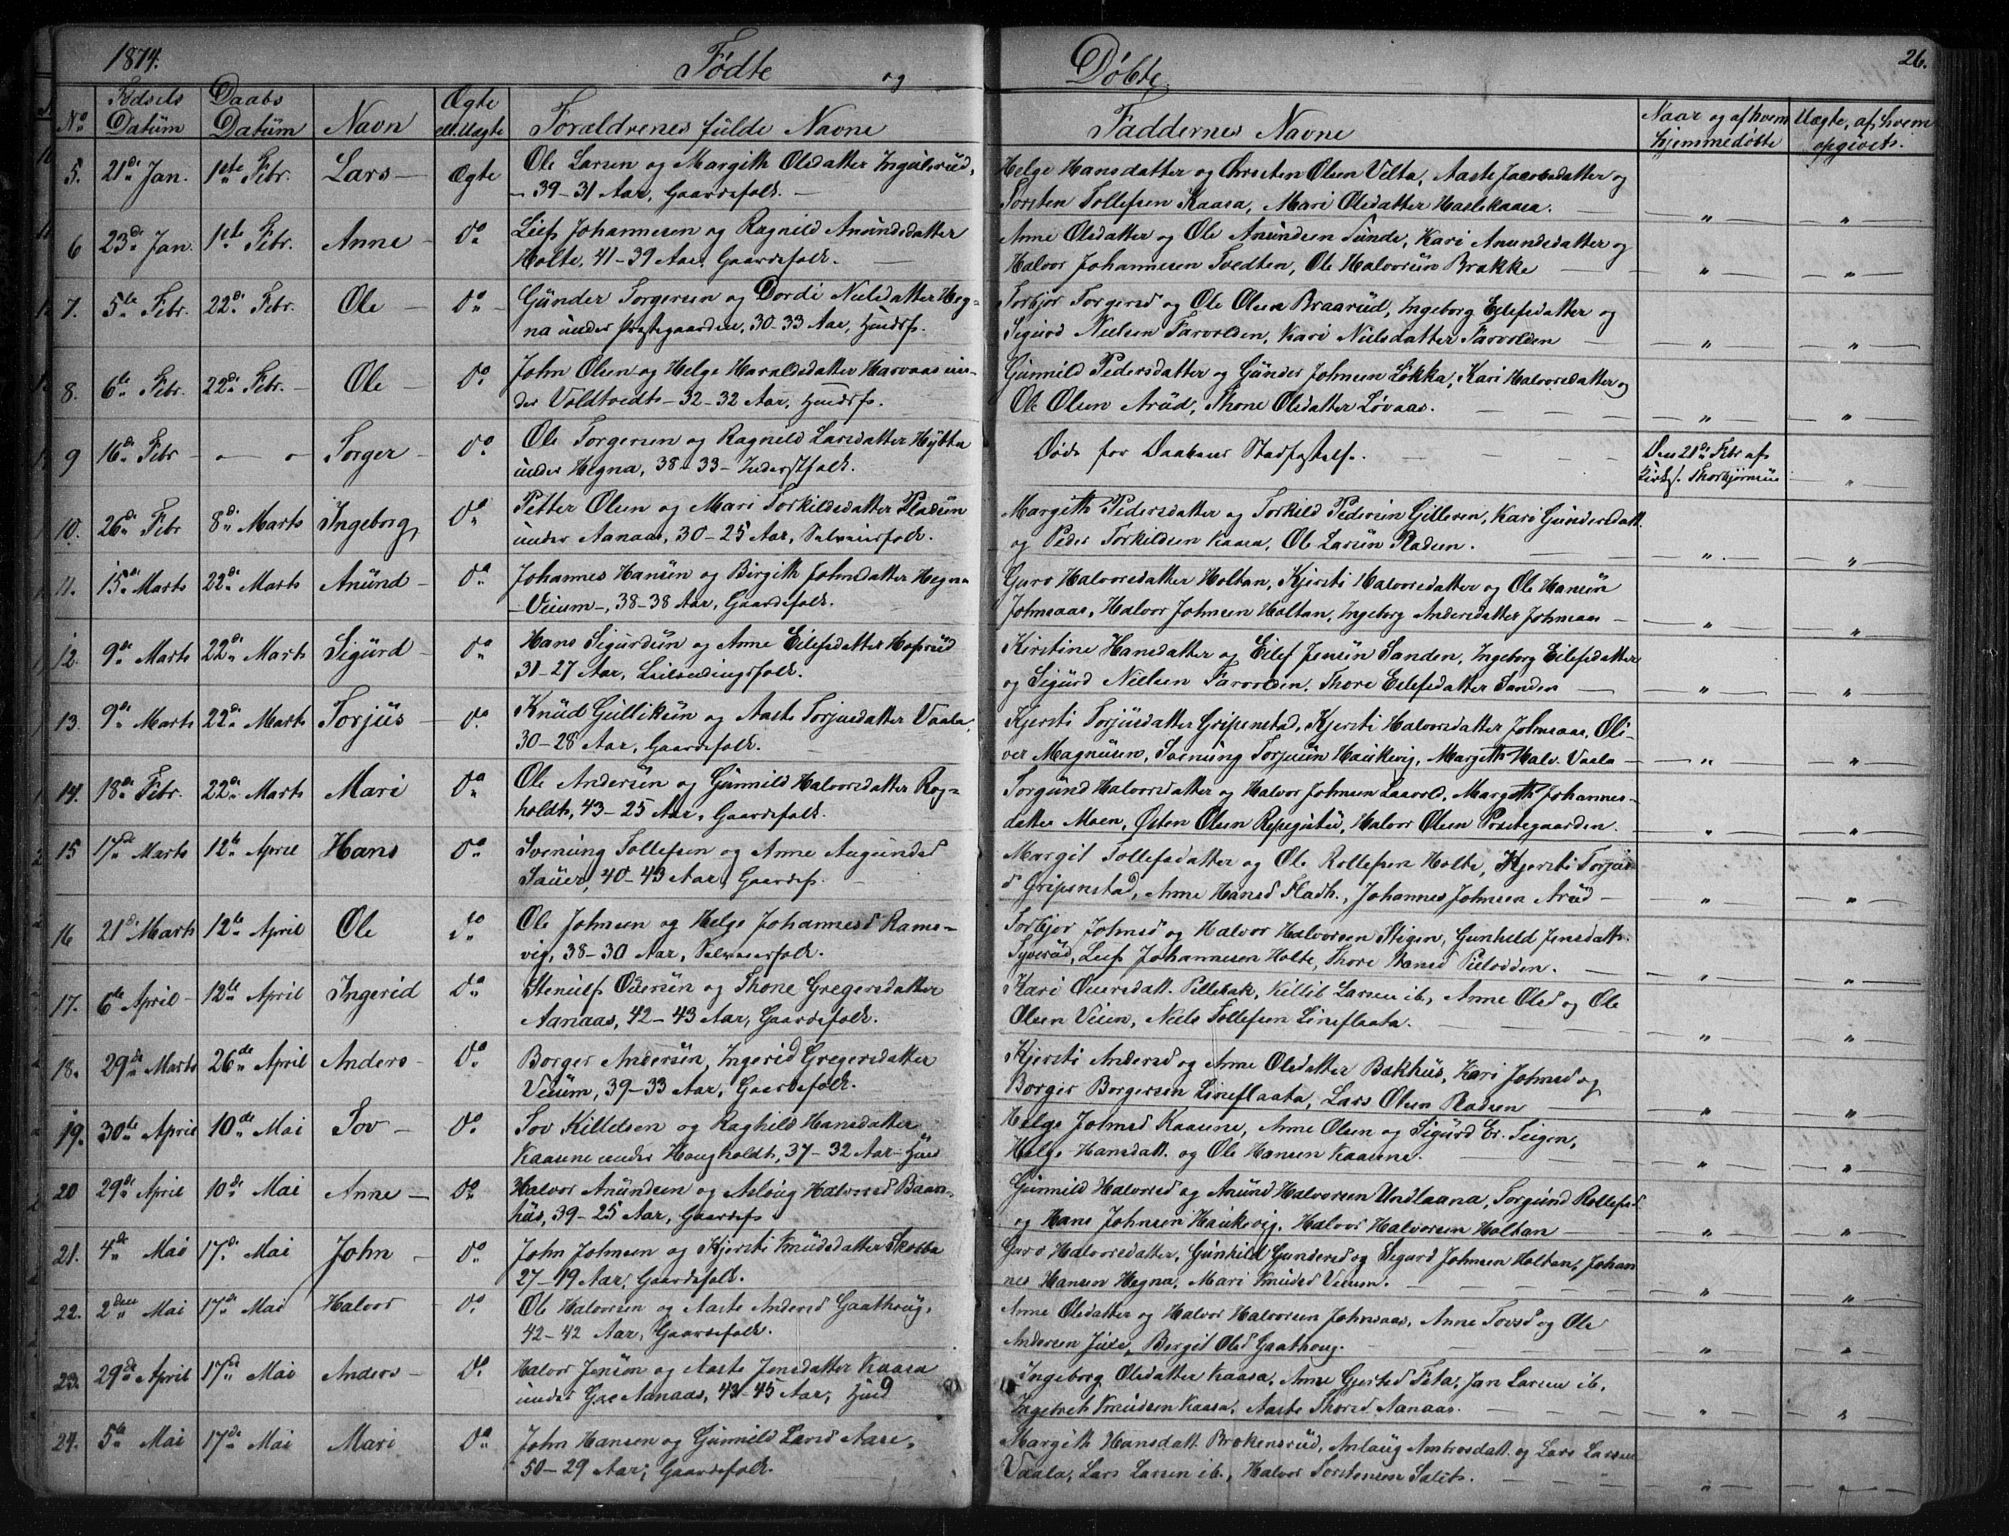 1874. Fødte og Døbte 26.
No. Fødsels Datum Daabs Datum Navn Ægte ell. Uægte Forældrenes fulde Navne Faddernes Navne Naar og af hvem hjemmedøbte Uægte, af hvem opgivet.
5. 21de Jan. 1ste Febr. Lars Ægte Ole Larsen og Margith Olsdatter Ingulsrud, Helge Hansdatter og Christen Olsen Velta, Aaste Jacobsdatter og
39-31 Aar, Gaardefolk. Torsten Tollefsen Kaasa, Mari Olsdatter Haslekaasa. " "
6 23de Jan. 1ste Febr. Anne do Leif Johannesen og Ragnild Anundsdatter Anne Olsdatter og Ole Anundsen Tunde, Kari Anundsdatter og
Holte, 41-39 Aar, Gaardefolk. Halvor Johannesen Tvedten, Ole Halvorsen Brakke " "
7. 5te Febr. 22de Febr. Ole do Gunder Torgersen og Dordi Nielsdatter Heg- Torbjør Torgersd og Ole Olsen Braarud, Ingeborg Eilefsdatter og
na under Præstegaarden, 30-33 Aar, Huusf. Sigurd Nielsen Farvolden, Kari Nielsdatter Farvolden " "
8. 6te Febr. 22de Febr. Ole do John Olsen og Helge Haraldsdatter Harvaas un- Gunnild Pedersdatter og Gunder Johnsen Løkka, Kari Halvorsdatter og
der Voldtvedt 32-32 Aar, Huusf. Ole Olsen Arud, Thone Olsdatter Løvaas. " "
9 16de Febr Torger do Ole Torgersen og Ragnild Larsdatter Hytta Døde før Daabens Stadfæstelse. Den 21de Febr af
under Hegna, 38-33 Inderstfolk. Kirkes. Thorbjørnsen "
10. 26de Febr 8de Marts Ingeborg do Petter Olsen og Mari Torkildsdatter Pladsen Margith Pedersdatter og Torkild Pedersen Gilleren, Kari Gundersdatt.
under Aanaas, 30-25 Aar, Selveierfolk. og Peder Torkildsen Kaasa, Ole Larsen Pladsen. " "
11. 15de Marts 22de Marts Anund do Johannes Hansen og Birgith Johnsdatter Hegna Guro Halvorsdatter Holtan, Kjersti Halvorsdatter og Ole Hansen
Veium, 38-38 Aar, Gaardefolk. Johnsaas, Halvor Johnsen Holtan, Ingeborg Andersdatter Johnsaas " "
12. 9de Marts 22de Marts Sigurd do Hans Sigurdsen og Anne Eilefsdatter Hofsrud Kirstine Hansdatter og Eilef Jensen Sanden, Ingeborg Eilefsdatter
31-27 Aar, Leilændingsfolk. og Sigurd Nielsen Farvolden, Thore Eilefsdatter Sanden " "
13. 9de Marts 22de Marts Torjus do Knud Gulliksen og Aaste Torjusdatter Vaala, Kjersti Torjusdatter Gripenstad, Kjersti Halvorsdatter Johnsaas, Oli-
30-28 Aar, Gaardefolk. ver Magnusen, Svenung Torjusen Haukvig, Margith Halv. Vaala " "
14. 18de Febr. 22de Marts Mari do Ole Andersen og Gunnild Halvorsdatter Rog- Torgund Halvorsdatter og Halvor Johnsen Laavold, Margith Johannes-
holdt, 43-25 Aar, Gaardefolk. datter Moen, Østen Olsen, Halvor Olsen Præstegaarden. " "
15 17de Marts 12te April Hans do Svenung Tollefsen og Anne Augundsd Margit Tollefsdatter og Ole Rollefsen Holte, Kjersti Torjus-
Sauer, 40-43 Aar, Gaardef. d Gripenstad, Anne Hansd Fladh., Johannes Johnsen Arud " "
16 21de Marts 12te April Ole do Ole Johnsen og Helge Johannesd Rams- Torbjør Johnsd og Halvor Halvorsen Stigen, Gunhild Jensdatt.
vig, 38-30 Aar, Selveierfolk. Syverud, Leif Johannesen Holte, Thore Hansd Pilodden. " "
17. 6te April 12te April Ingerid do Stenulf Olsen og Thone Gregersdatter Kari Omersdatt. Pillebak, Killil Larsen ib., Anne Olsd og Ole
Aanaas, 42-43 Aar, Gaardefolk. Olsen Veien, Niels Tollefsen Lineflaata. " "
18. 29de Marts 26de April Anders do Borger Andersen, Ingerid Gregersdatter Kjersti Andersd og Anne Olsdatter Bakhus, Kari Johnsd og
Veium, 39-33 Aar, Gaardefolk. Borger Borgersen Lineflaata, Lars Olsen Pladsen " "
19. 30te April 10de Mai Tov do Tov Killelsen og Raghild Hansdatter Helge Johnsd Kaasene, Anne Olsen og Sigurd Er. Teigen,
Kaasene under Hougholdt, 37-32 Aar Huus Helge Hansdatt. og Ole Hansen Kaasene. " "
20 29de April 10de Mai Anne do Halvor Anundsen og Aslaug Halvorsd Baar- Gunnild Halvorsd og Anund Halvorsen Undlaana, Torgund Rollefsd
hus, 39-25 Aar, Gaardef og Hans Johnsen Haukvig, Halvor Halvorsen Holtan " "
21. 4de Mai 17de Mai John do John Johnsen og Kjersti Knudsdatter Skotta Guro Halvorsdatter, Gunhild Gundersd og Sigurd Johnsen Holtan, Johan
27-19 Aar, Gaardefolk. nes Hansen Hegna, Mari Knudsd Veium. " "
22. 2den Mai 17de Mai Halvor do Ole Halvorsen og Aaste Andersd Gaathoug, Anne Olsdatter og Halvor Halvorsen Johnsaas, Anne Tovsd og Ole
42-42 Aar, Gaardefolk. Andersen Juve, Bergit Olsd Gaathoug. " "
23. 29de April 17de Mai Anders do Halvor Jensen og Aaste Jensdatter Kaasa Ingeborg Olsdatter Kaasa, Anne Gjersd Teta, Jan Larsen ib,
under Gre Aanaas, 43-45 Aar, Huus Ingebret Knudsen Kaasa, Aaste Thoresd Aanaas. " "
24. 5te Mai 17de Mai Mari do John Hansen og Gunnild Larsd Aase, Margith Hansdatt. Brokensrud, Anlaug Ambrosdatt. og Lars Larsen
50-29 Aar, Gaardefolk. Vaala, Lars Larsen ib., Halvor Torstensen Salits. " "